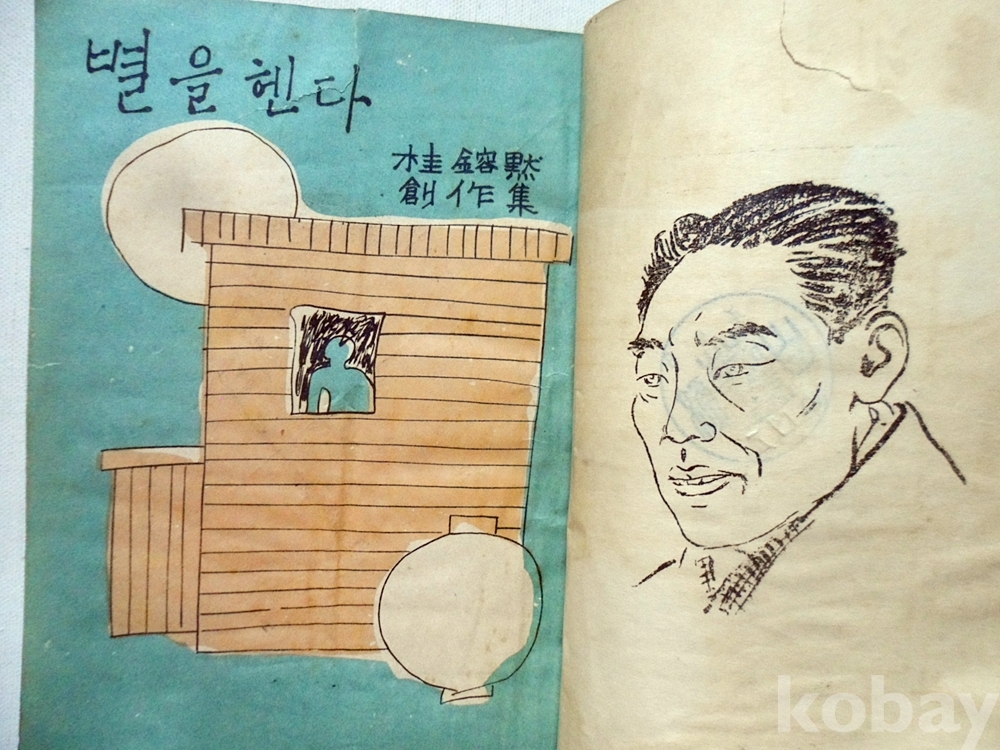 별을 헨다
桂鎔默
創作集
kobay